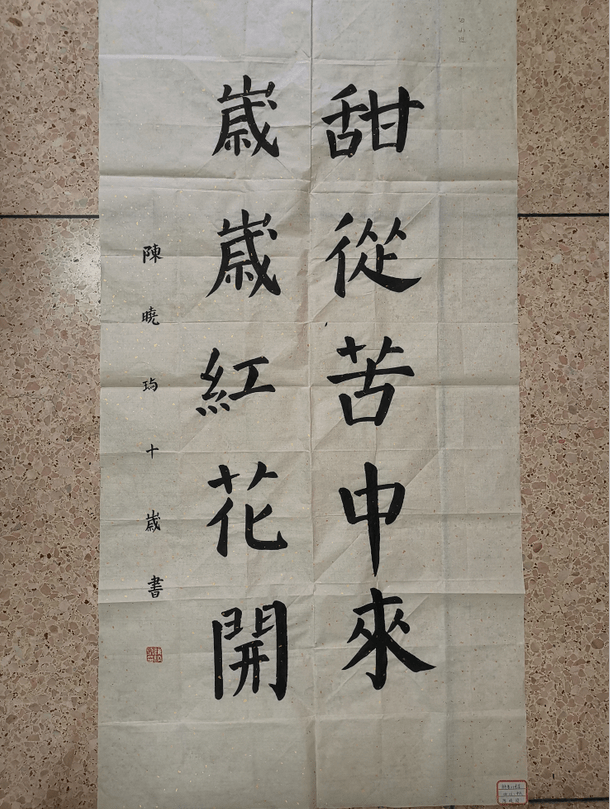 甜從苦中來
歲歲紅花開
陳曉瑀十歲書